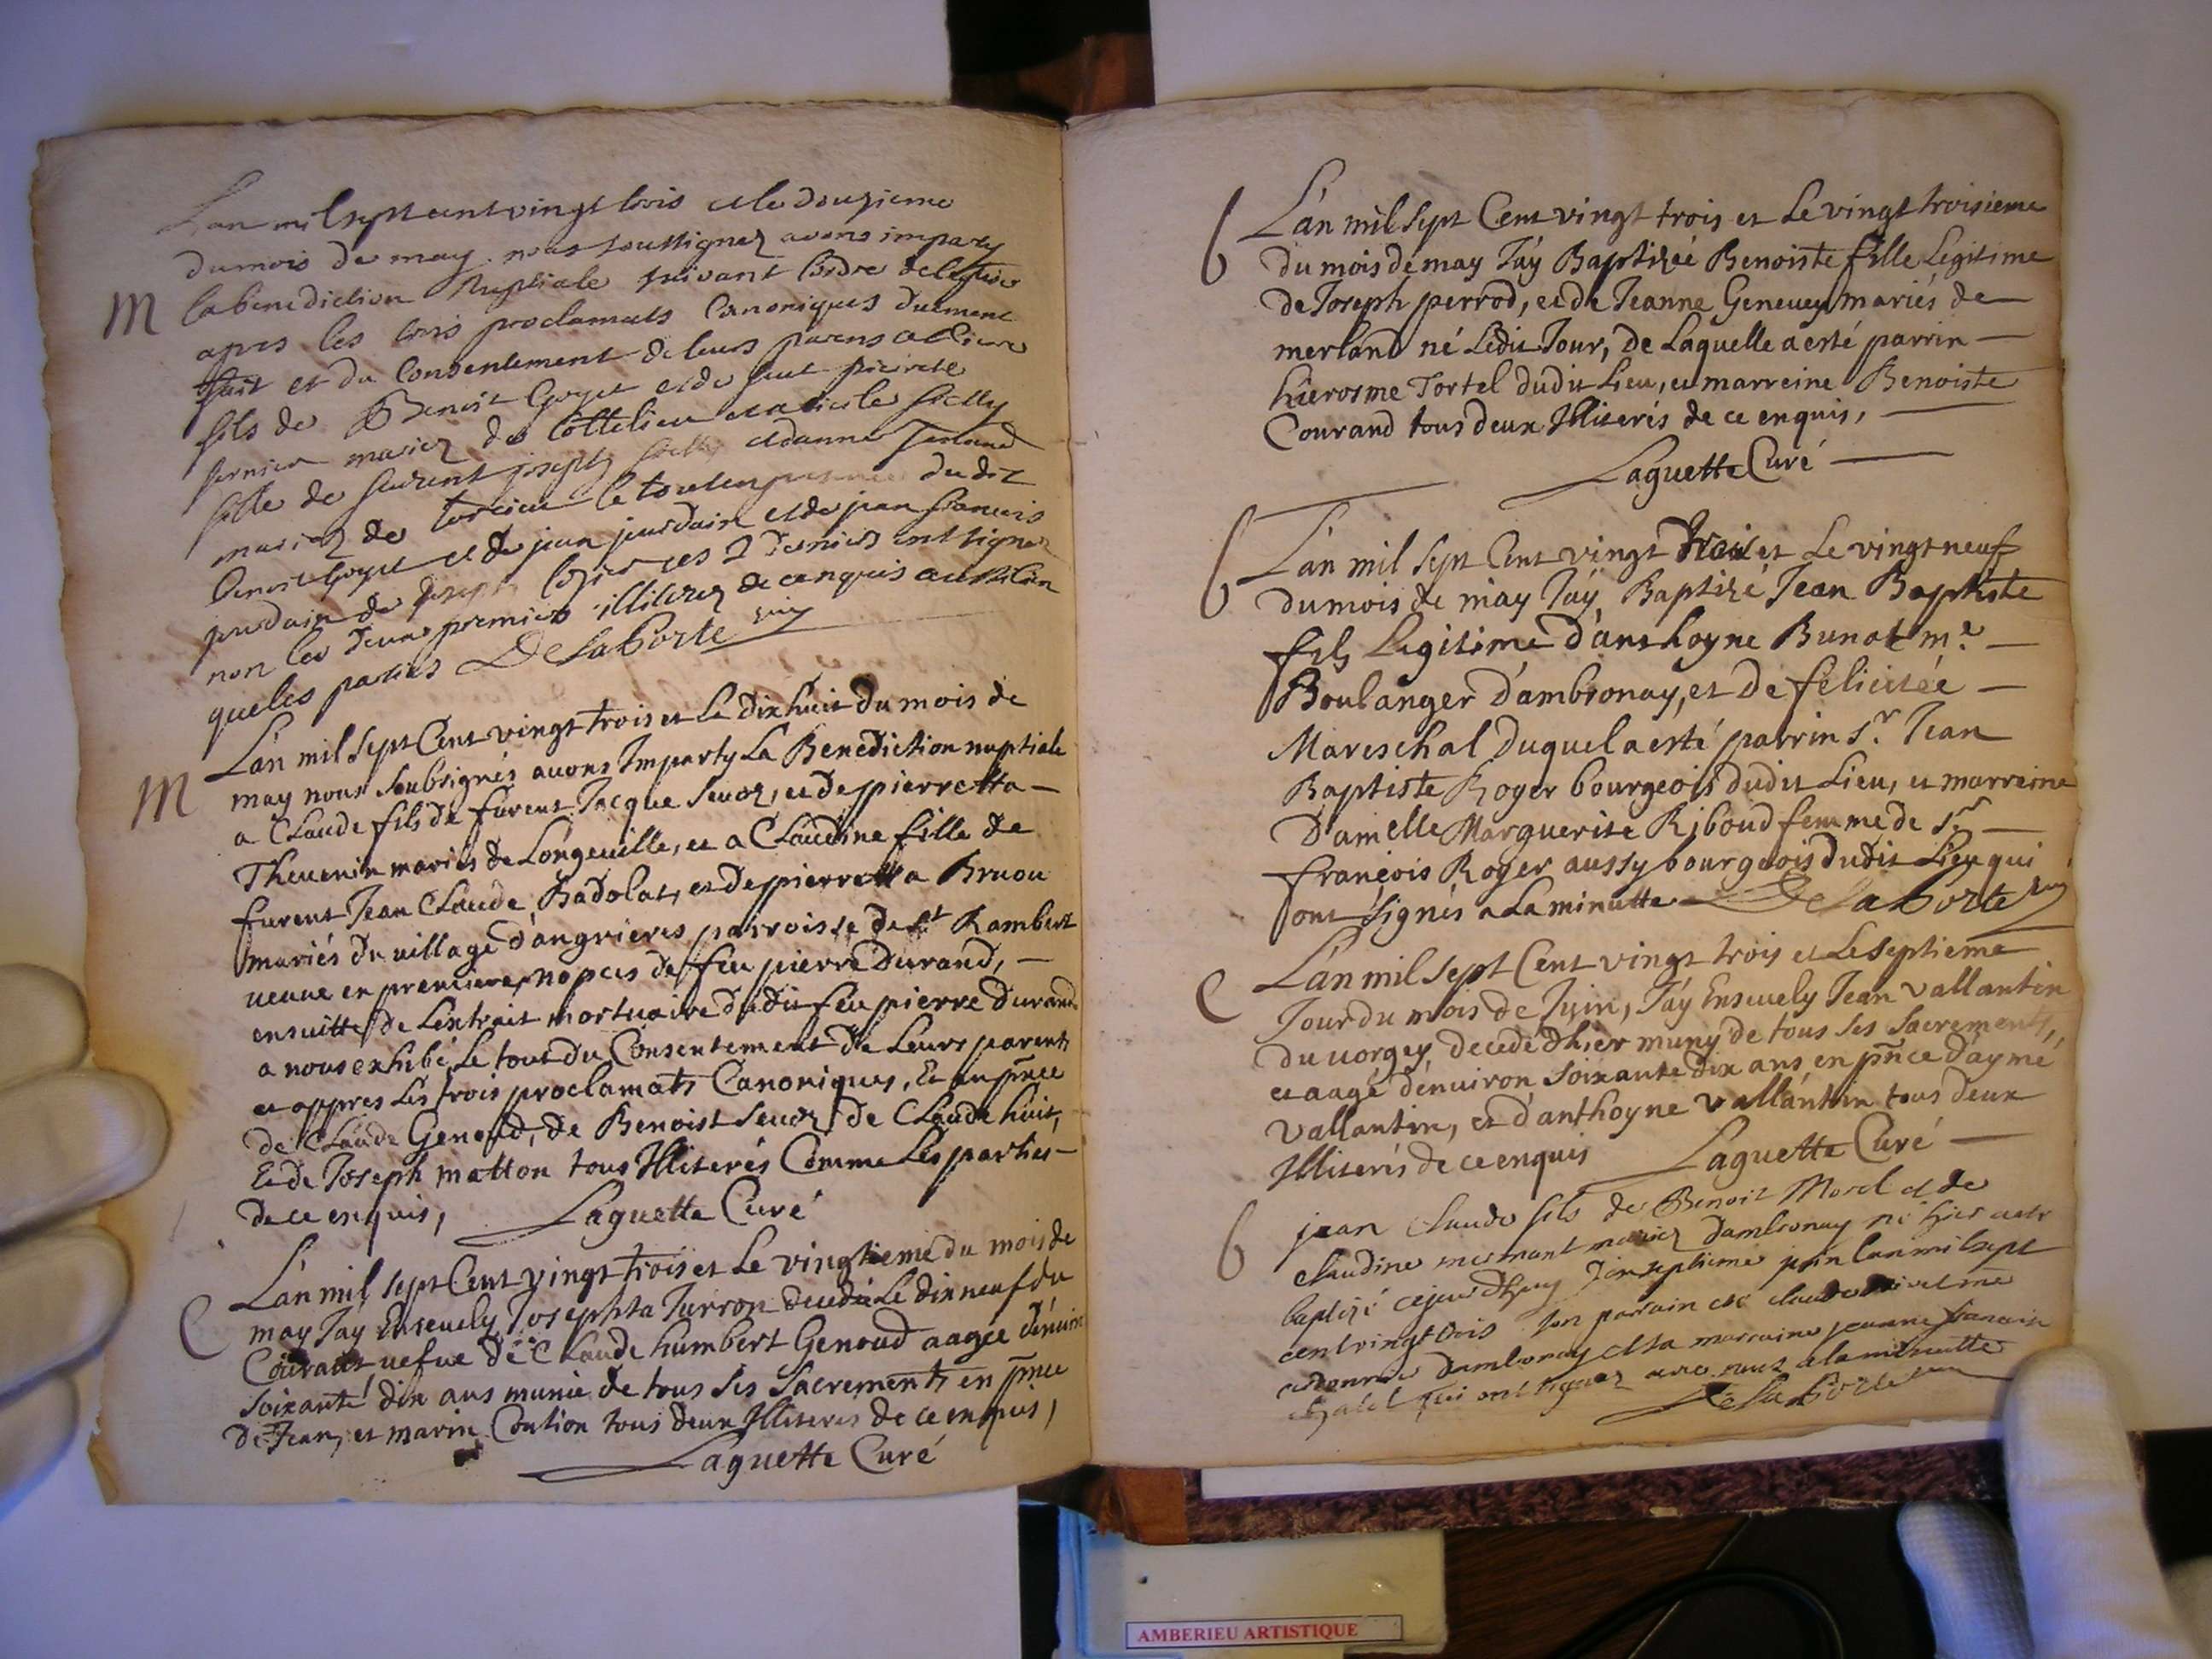 L'an mil sept cent vingt trois et le douzieme
du mois de may nous soussignez avons imparty
M la benediction Nuptiale suivant l'ordre de l'eglise
apres les trois proclamats Canoniques duement
fait et du Consentement de leurs parens a
fils de Benoit Goyet et de
mariez de
fille de joseph
mariez de torcieu le tout en du dit
benoit Goyet et de jean jourdain et de jean francois
jourdain de joseph ces 2 derniers ont signez
non les deux premiers illiterez de ce enquis aussi bien
que les parties De la Porte
L'an mil sept Cent vingt trois et Le dix huit du mois de
M may nous soubsignés auons Imparty La Benediction nuptiale
a Claude fils de furent Jacque Seuoz, et de pierretta —
Theuenin mariés de Longeuille, et a Claudine fille de
furent Jean Claude Badolat, et de pierretta Bruou
mariés du uillage d'angrieres parroisse de St Rambert
ueuue en premieres nopces de feu pierre Durand, —
ensuitte de L'extrait mortuaire du dit feu pierre durand
a nous exhibé, Le tout du Consentement de Leurs parents
et appres Les trois proclamats Canoniques, Et en pnce
de Claude Genoud, de Benoist Seuoz, de Claude huit,
Et de Joseph matton tous Illiterés Comme Les parties —
de ce enquis, Laguette Curé
L'an mil sept Cent vingt trois et Le vingtieme du mois de
C may J'ay Enseuely Josephta Jurron decedée Le dix neuf du
Courant uefue de Claude humbert Genoud aagée d'enuiron
soixante dix ans munie de tous ses Sacrements en pnce
De Jean, et marin Coution tous deux Illiterés de ce enquis,
Laguette Curé
b L'an mil sept Cent vingt trois et Le vingt troisieme
du mois de may J'ay Baptizéé Benoiste fille Legitime
de Joseph perrod, et de Jeanne Geneuey mariés de —
merland né Ledit Jour, de Laquelle a esté parrin —
hierosme Tortel dudit Lieu, et marreine Benoiste
Courand tous deux Illiterés de ce enquis, —
Laguette Curé —
b L'an mil sept Cent vingt trois et Le vingt neuf
du mois de may J'ay Baptizé Jean Baptiste
fils Legitime d'anthoyne Bunot me —
Boulanger d'ambronay, et de felicitée —
Mareschal Duquel a esté parrin Sr Jean
Baptiste Roger bourgeois dudit Lieu, et marreine
Damelle Marguerite Riboud femme de Sr —
françois Roger aussy bourgeois dudit Lieu qui
ont signés a La minutte De la Porte
C L'an mil sept Cent vingt trois et Le septieme
Jour du mois de Juin, J'ay Enseuely Jean vallantin
du uorgey, decedé d'hier muny de tous ses Sacrements,
et aagé d'enuiron soixante dix ans en pnce d'aymé
vallantin, et d'anthoyne vallantin tous deux
Illiterés de ce enquis Laguette Curé —
b jean Claude fils de Benoit Morel et de
Claudine mermant mariez d'ambronay né hier
baptizé ce jourd'huy septieme juin l'an mil sept
cent vingt trois son parrain est claude
d'ambronay et sa marraine jeanne
qui ont signez avec nous a la minutte
De la Porte
AMBERIEU ARTISTIQUE